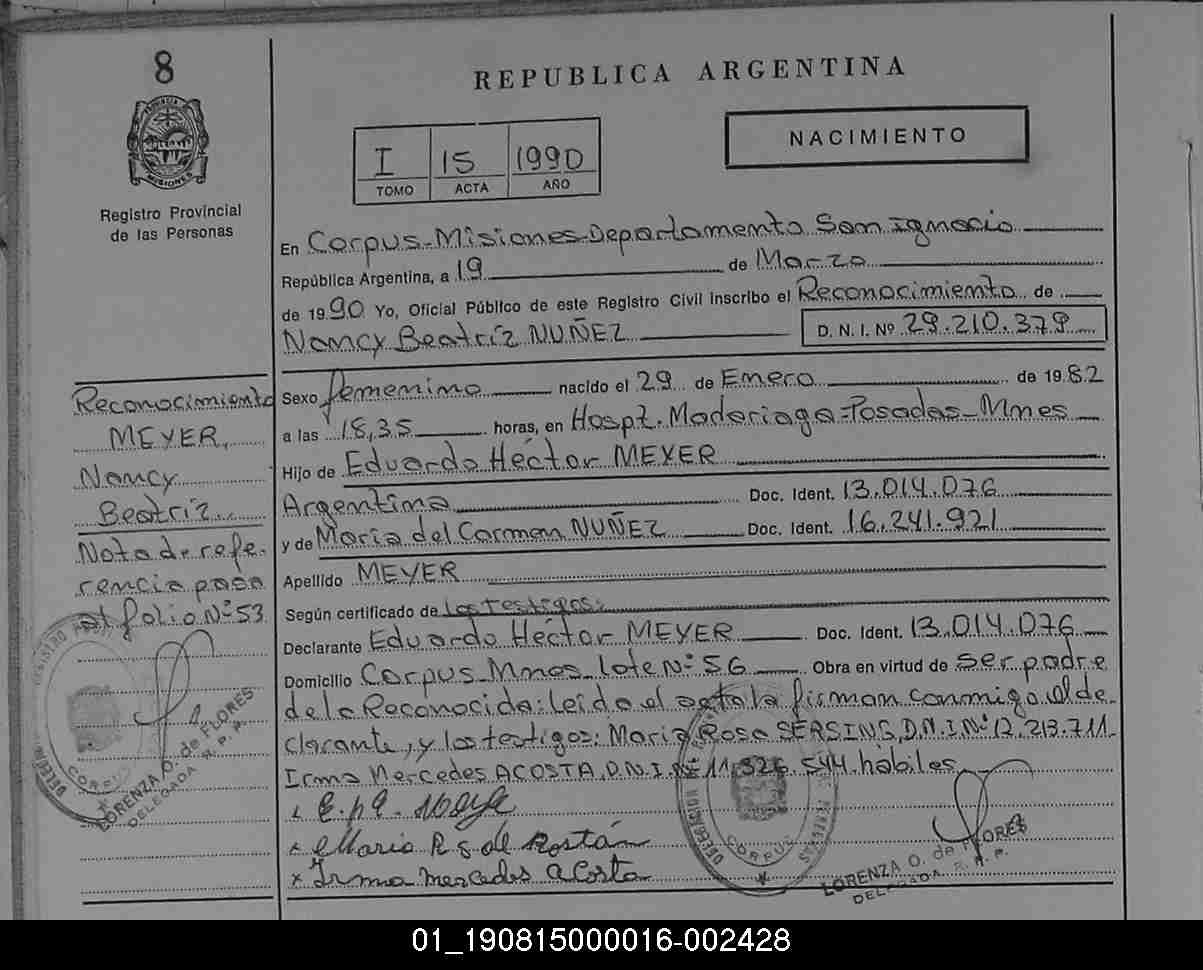 8
PROVINCIA DE
MISIONES
Registro Provincial
de las Personas
REPUBLICA ARGENTINA
I 15 1990
TOMO ACTA AÑO
NACIMIENTO
En Corpus-Misiones-Departamento San Ignacio
República Argentina, a 19 de Marzo
de 1990 Yo, Oficial Público de este Registro Civil inscribo el Reconocimiento de
Nancy Beatríz NUÑEZ D. N. I. Nº 29.210.379
Sexo femenino nacido el 29 de Enero de 1982
a las 18,35 horas, en Hospt. Madariaga-Posadas-Mnes
Hijo de Eduardo Héctor MEYER
Argentina Doc. Ident. 13.014.076
y de Maria del Carmen NUÑEZ Doc. Ident. 16.241.921
Apellido MEYER
Según certificado de los testigos:
Declarante Eduardo Héctor MEYER Doc. Ident. 13.014.076
Domicilio Corpus Mnes lote Nº 56 Obra en virtud de ser padre
de la Reconocida: leída el acta la firman conmigo el de-
clarante, y los testigos: Maria Rosa SERSING, D.N.I. Nº 12.213.711
Irma Mercedes ACOSTA, D.N.I. Nº 11.326.544. hábiles
x
x Maria R S de Rostán
x Irma Mercedes Acosta
DELEGACION
CORPUS
LORENZA O. de FLORES
DELEGADA R. P. P.
Reconocimiento
MEYER,
Nancy
Beatríz
Nota de refe-
rencia pasa
al folio Nº 53
REGISTRO PROV.
DELEGACION
CORPUS
LORENZA O. de FLORES
DELEGADA R. P. P.
01_190815000016-002428